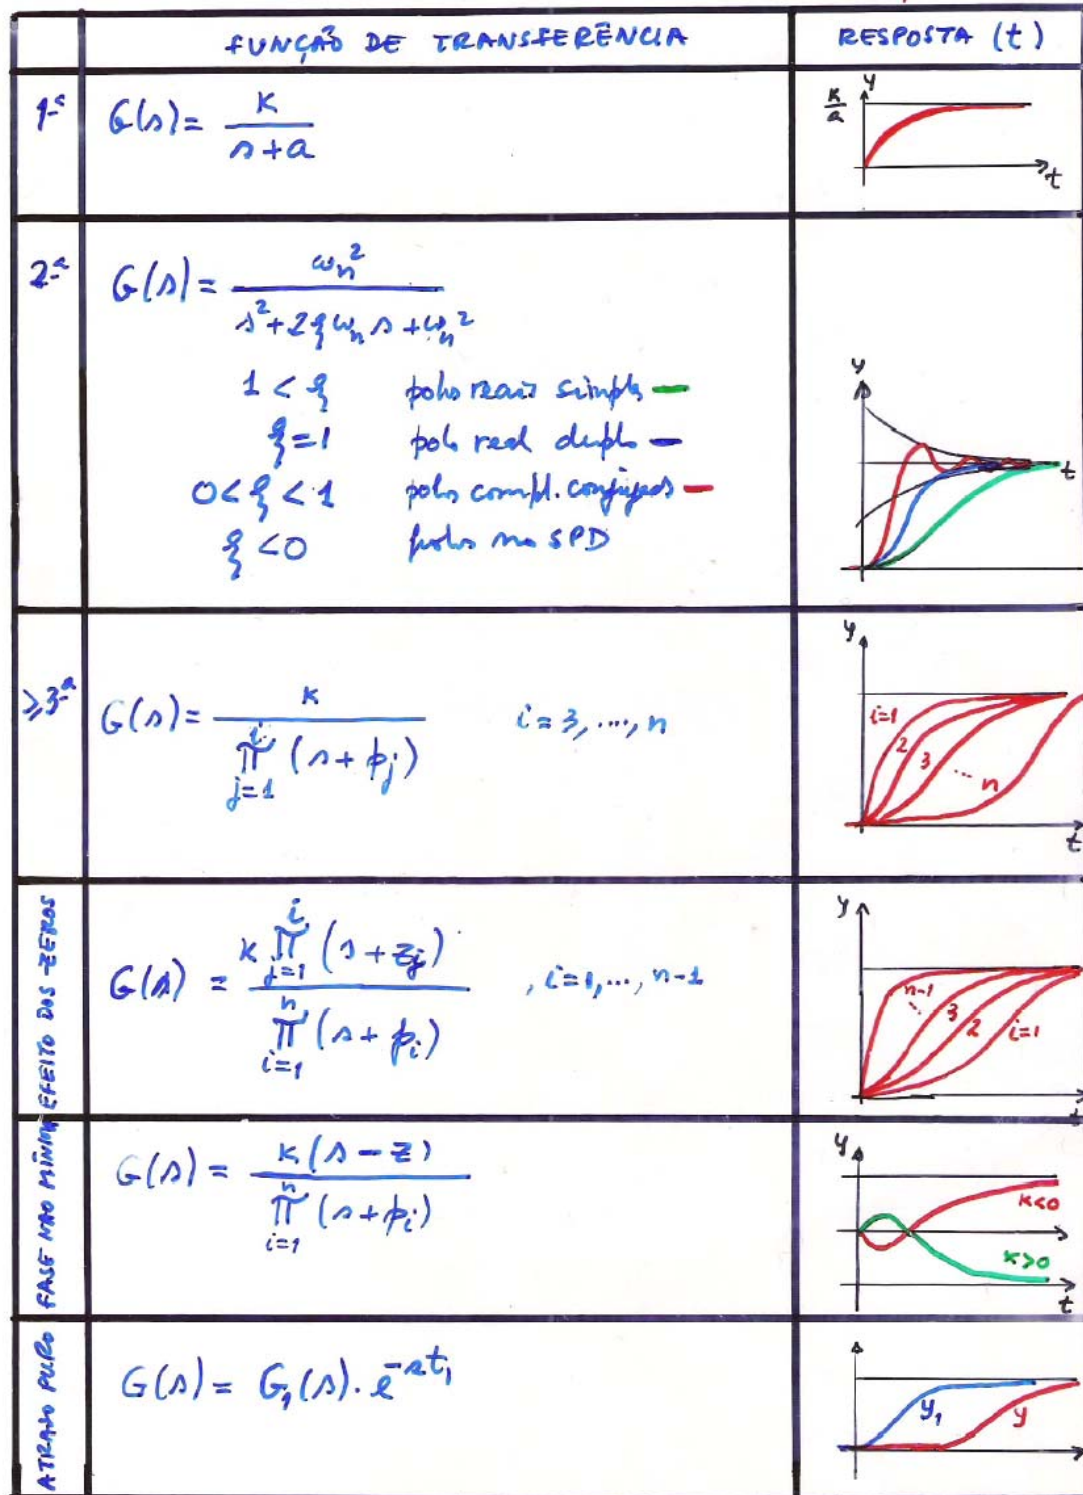 FUNÇÃO DE TRANSFERÊNCIA
RESPOSTA (t)
1ª
G(s) = K / (s + a)
K/a
y
t
2ª
G(s) = ωn² / (s² + 2ξωn s + ωn²)
1 < ξ polos reais simples
ξ = 1 polo real duplo
0 < ξ < 1 polos compl. conjugados
ξ < 0 polos no SPD
y
t
≥3ª
G(s) = K / ∏_{j=1}^{i} (s + pj) i = 3, ..., n
y
i=1
2
3
... n
t
EFEITO DOS ZEROS
G(s) = K ∏_{j=1}^{i} (s + zj) / ∏_{i=1}^{n} (s + pi) , i = 1, ..., n-1
y
n-1
3
2
i=1
t
FASE NÃO MÍNIMA
G(s) = K (s - z) / ∏_{i=1}^{n} (s + pi)
y
K<0
K>0
t
ATRASO PURO
G(s) = G1(s) . e^{-st1}
y1
y